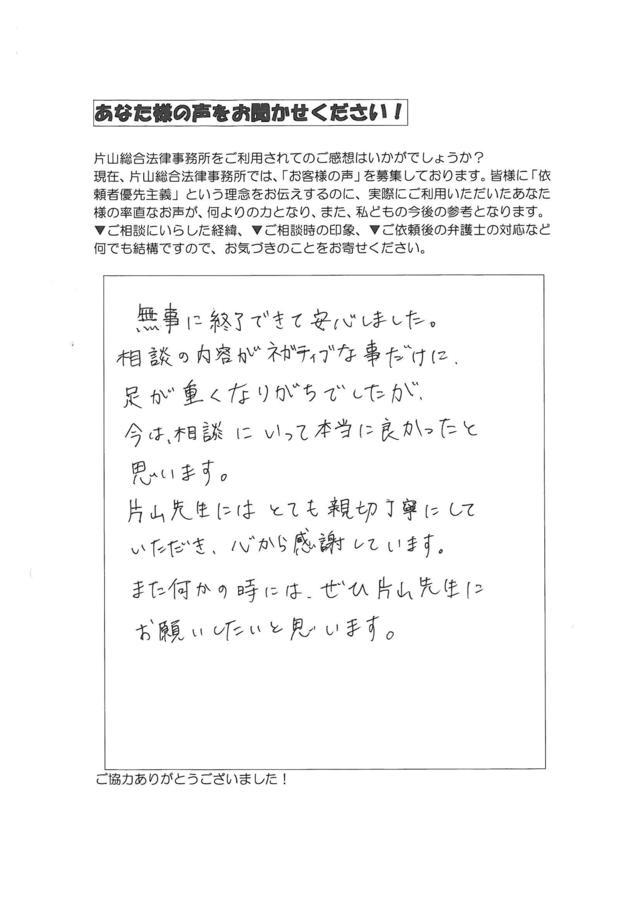 あなた様の声をお聞かせください！
片山総合法律事務所をご利用されてのご感想はいかがでしょうか？
現在、片山総合法律事務所では、「お客様の声」を募集しております。皆様に「依
頼者優先主義」という理念をお伝えするのに、実際にご利用いただいたあなた
様の率直なお声が、何よりの力となり、また、私どもの今後の参考となります。
▼ご相談にいらした経緯、▼ご相談時の印象、▼ご依頼後の弁護士の対応など
何でも結構ですので、お気づきのことをお寄せください。
無事に終了できて安心しました。
相談の内容がネガティブな事だけに、
足が重くなりがちでしたが、
今は、相談にいって本当に良かったと
思います。
片山先生にはとても親切丁寧にして
いただき、心から感謝しています。
また何かの時には、ぜひ片山先生に
お願いしたいと思います。
ご協力ありがとうございました！